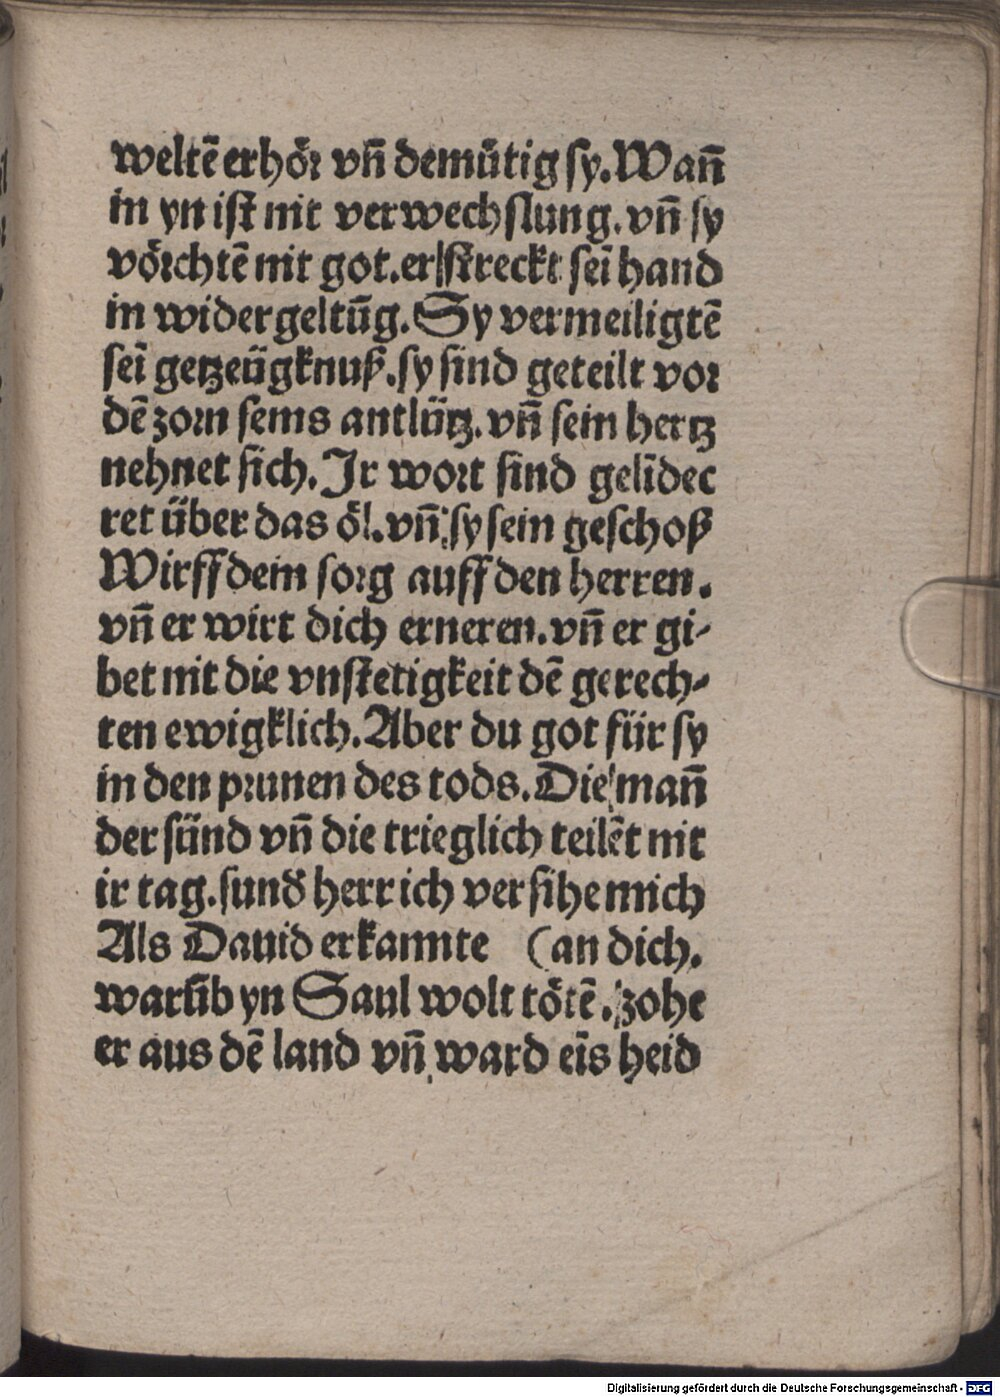 weltē erhör vñ demütig sy. Wañ
in yn ist nit verwechslung. vñ sy
vörchtē nit got. er streckt sei hand
in widergeltūg. Sy vermeiligtē
sei getzeügknuß. sy sind geteilt vor
dē zorn seins antlütz. vñ sein hertz
nehnet sich. Ir wort sind gelīdec
ret über das öl. vñ sy sein geschoß
Wirff dein sorg auff den herren.
vñ er wirt dich erneren. vñ er gi-
bet nit die vnstetigkeit dē gerech-
ten ewigklich. Aber du got für sy
in den prunen des tods. Die mañ
der sünd vñ die trieglich teilēt nit
ir tag. sund herr ich versihe mich
Als Dauid erkannte (an dich.
warūb yn Saul wolt tötē. zohe
er aus dē land vñ ward eīs heid
Digitalisierung gefördert durch die Deutsche Forschungsgemeinschaft - DFG